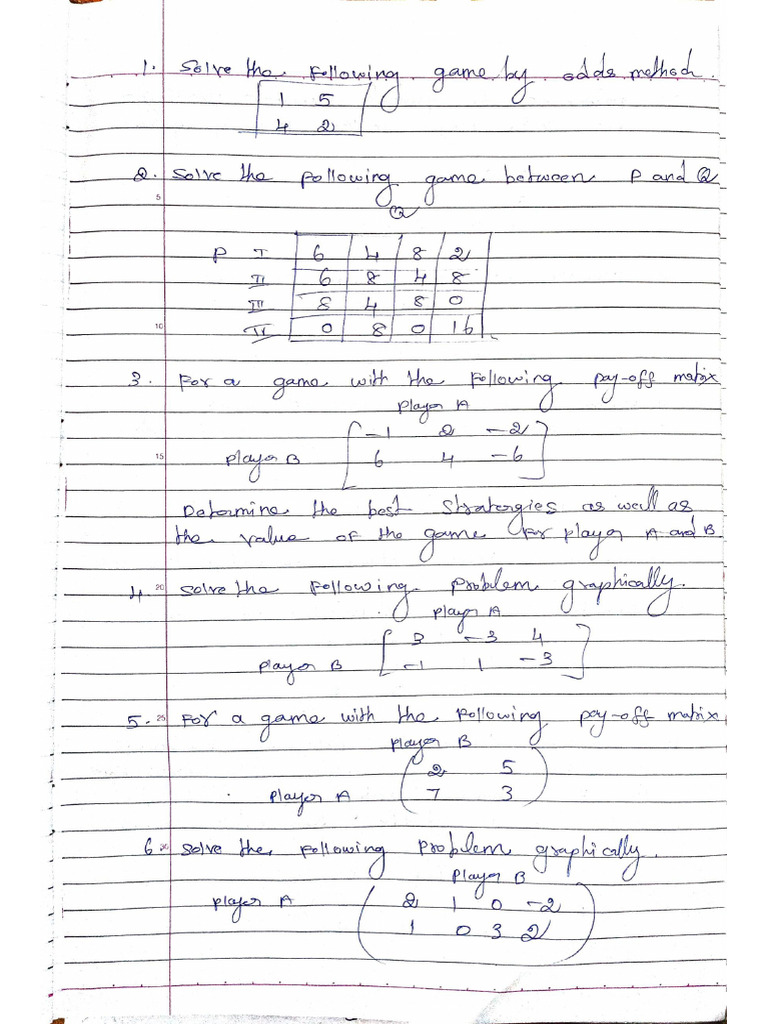 1. Solve the following game by odds method.
1 5
4 2
2. Solve the following game between P and Q
5
Q
P I 6 4 8 2
II 6 8 4 8
III 8 4 8 0
10 IV 0 8 0 16
3. For a game with the following pay-off matrix
Player A
-1 2 -2
15 Player B 6 4 -6
Determine the best stratergies as well as
the value of the game for player A and B.
4. 20 Solve the following problem graphically.
Player A
3 -3 4
Player B -1 1 -3
5. 25 For a game with the following pay-off matrix
Player B
2 5
Player A 7 3
6. Solve the following problem graphically.
Player B
Player A 2 1 0 -2
1 0 3 2